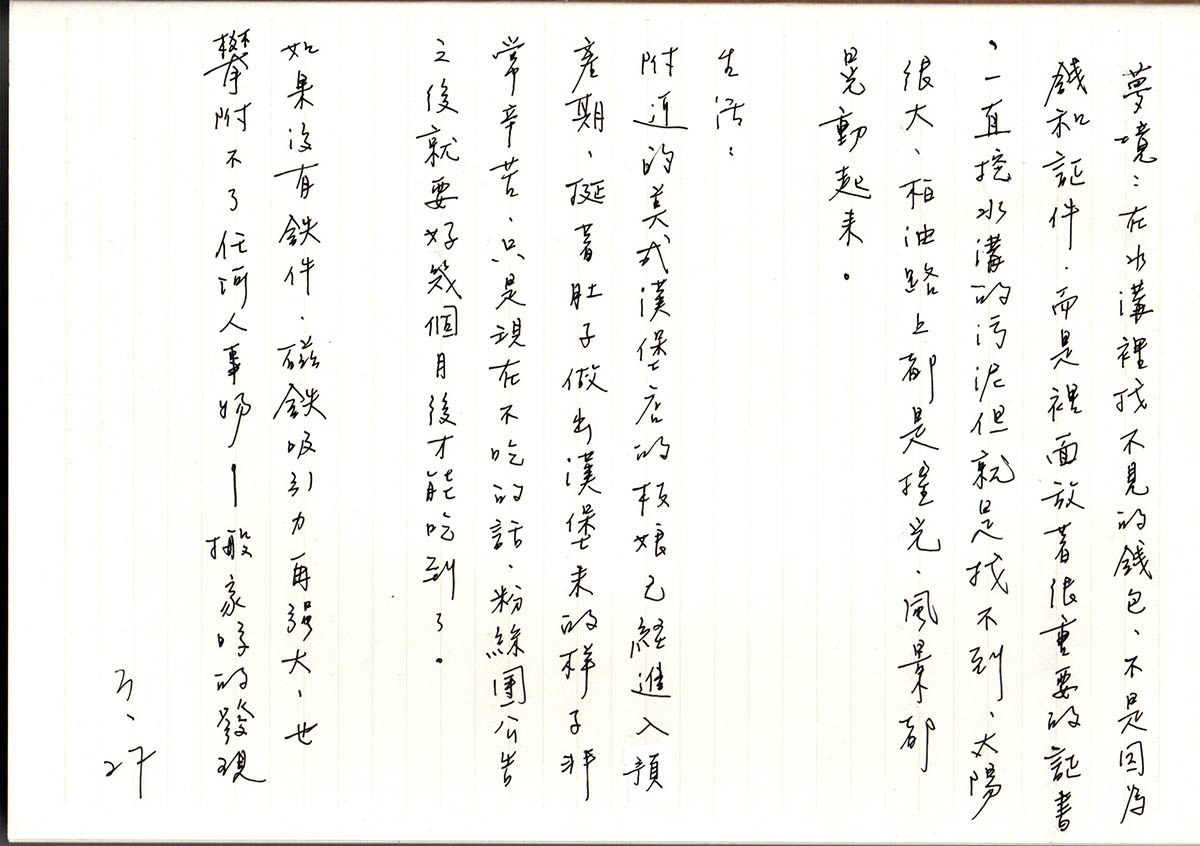 夢境：在水溝裡找不見的錢包、不是因為
錢和証件．而是裡面放著很重要的証書
、一直挖水溝的污泥但就是找不到、太陽
很大、柏油路上都是搖光、風景都
晃動起來。
生活：
附近的美式漢堡店的板娘已經進入預
產期、挺著肚子做出漢堡來的樣子非
常辛苦、只是現在不吃的話．粉絲團公告
之後就要好幾個月後才能吃到了。
如果沒有鉄件．磁鉄吸引力再強大、也
攀附不了任何人事物—搬家時的發現
27